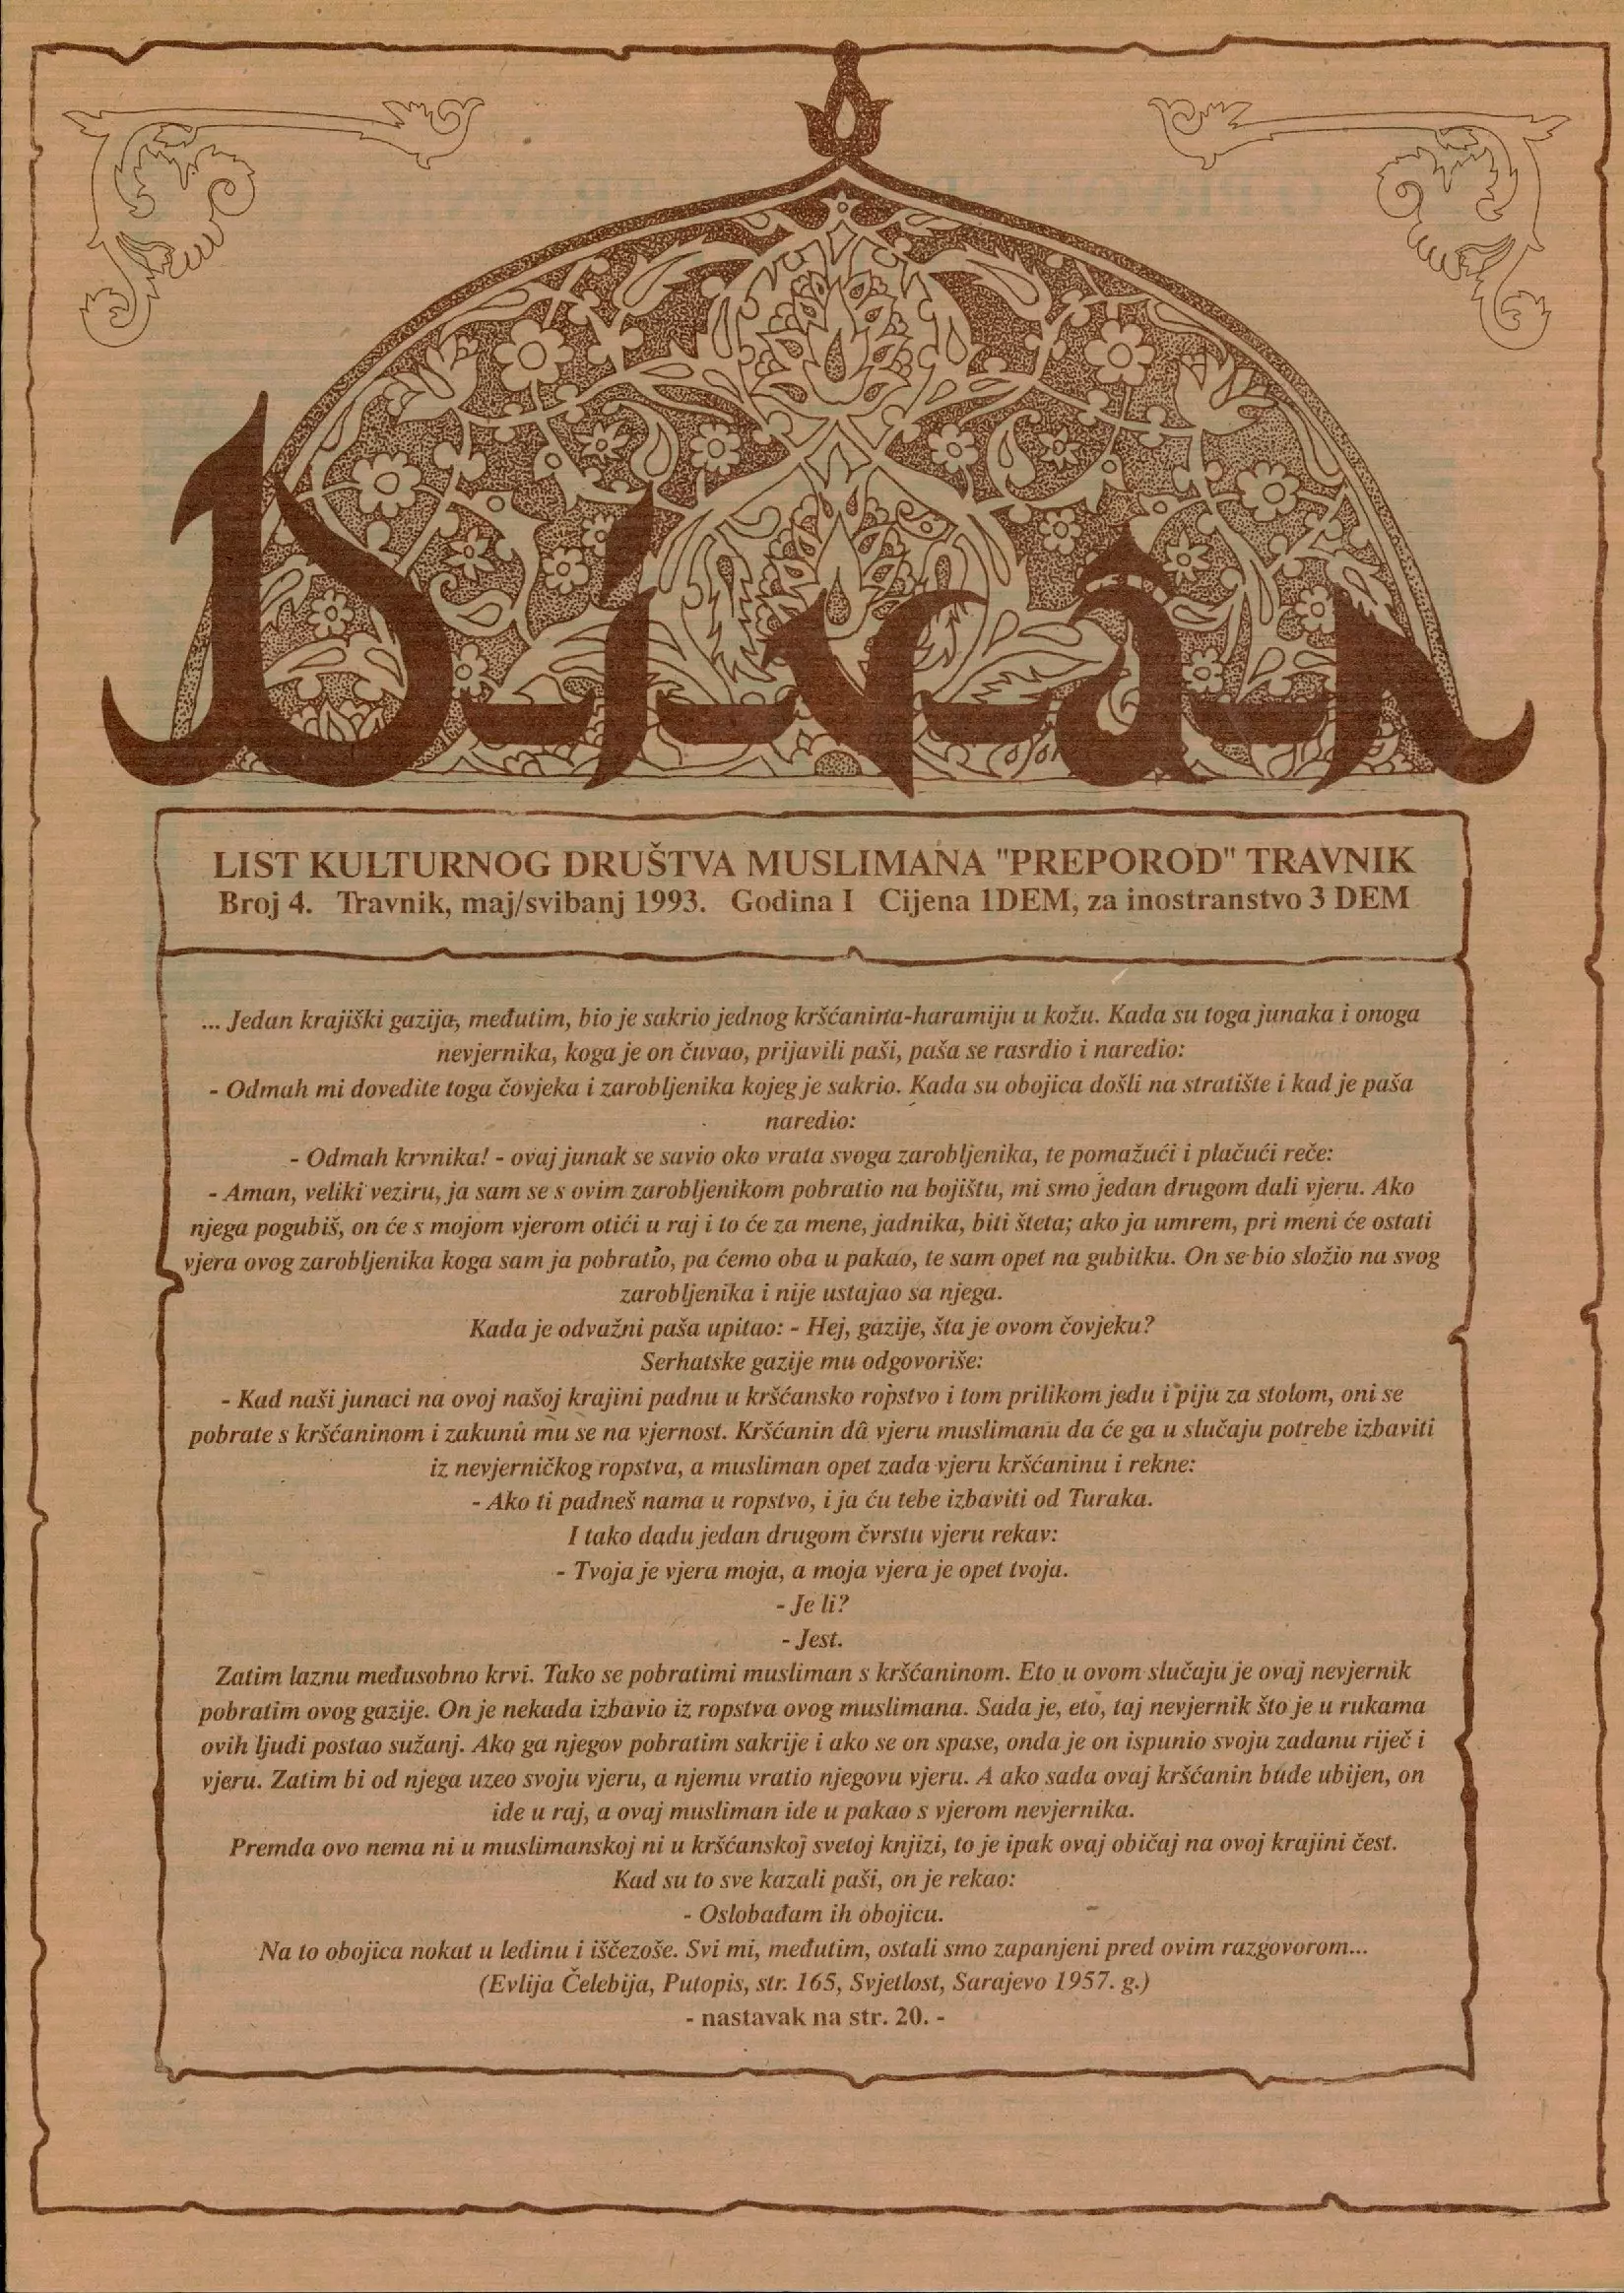 Divan
LIST KULTURNOG DRUŠTVA MUSLIMANA "PREPOROD" TRAVNIK
Broj 4. Travnik, maj/svibanj 1993. Godina I Cijena 1DEM, za inostranstvo 3 DEM
... Jedan krajiški gazija, međutim, bio je sakrio jednog kršćanina-haramiju u kožu. Kada su toga junaka i onoga
nevjernika, koga je on čuvao, prijavili paši, paša se rasrdio i naredio:
- Odmah mi dovedite toga čovjeka i zarobljenika kojeg je sakrio. Kada su obojica došli na stratište i kad je paša
naredio:
- Odmah krvnika! - ovaj junak se savio oko vrata svoga zarobljenika, te pomažući i plačući reče:
- Aman, veliki veziru, ja sam se s ovim zarobljenikom pobratio na bojištu, mi smo jedan drugom dali vjeru. Ako
njega pogubiš, on će s mojom vjerom otići u raj i to će za mene, jadnika, biti šteta; ako ja umrem, pri meni će ostati
vjera ovog zarobljenika koga sam ja pobratio, pa ćemo oba u pakao, te sam opet na gubitku. On se bio složio na svog
zarobljenika i nije ustajao sa njega.
Kada je odvažni paša upitao: - Hej, gazije, šta je ovom čovjeku?
Serhatske gazije mu odgovoriše:
- Kad naši junaci na ovoj našoj krajini padnu u kršćansko ropstvo i tom prilikom jedu i piju za stolom, oni se
pobrate s kršćaninom i zakunû mu se na vjernost. Kršćanin dâ vjeru muslimanu da će ga u slučaju potrebe izbaviti
iz nevjerničkog ropstva, a musliman opet zada vjeru kršćaninu i rekne:
- Ako ti padneš nama u ropstvo, i ja ću tebe izbaviti od Turaka.
I tako dadu jedan drugom čvrstu vjeru rekav:
- Tvoja je vjera moja, a moja vjera je opet tvoja.
- Je li?
- Jest.
Zatim laznu međusobno krvi. Tako se pobratimi musliman s kršćaninom. Eto u ovom slučaju je ovaj nevjernik
pobratim ovog gazije. On je nekada izbavio iz ropstva ovog muslimana. Sada je, eto, taj nevjernik što je u rukama
ovih ljudi postao sužanj. Ako ga njegov pobratim sakrije i ako se on spase, onda je on ispunio svoju zadanu riječ i
vjeru. Zatim bi od njega uzeo svoju vjeru, a njemu vratio njegovu vjeru. A ako sada ovaj kršćanin bude ubijen, on
ide u raj, a ovaj musliman ide u pakao s vjerom nevjernika.
Premda ovo nema ni u muslimanskoj ni u kršćanskoj svetoj knjizi, to je ipak ovaj običaj na ovoj krajini čest.
Kad su to sve kazali paši, on je rekao:
- Oslobađam ih obojicu.
Na to obojica nokat u ledinu i iščezoše. Svi mi, međutim, ostali smo zapanjeni pred ovim razgovorom...
(Evlija Čelebija, Putopis, str. 165, Svjetlost, Sarajevo 1957. g.)
- nastavak na str. 20. -